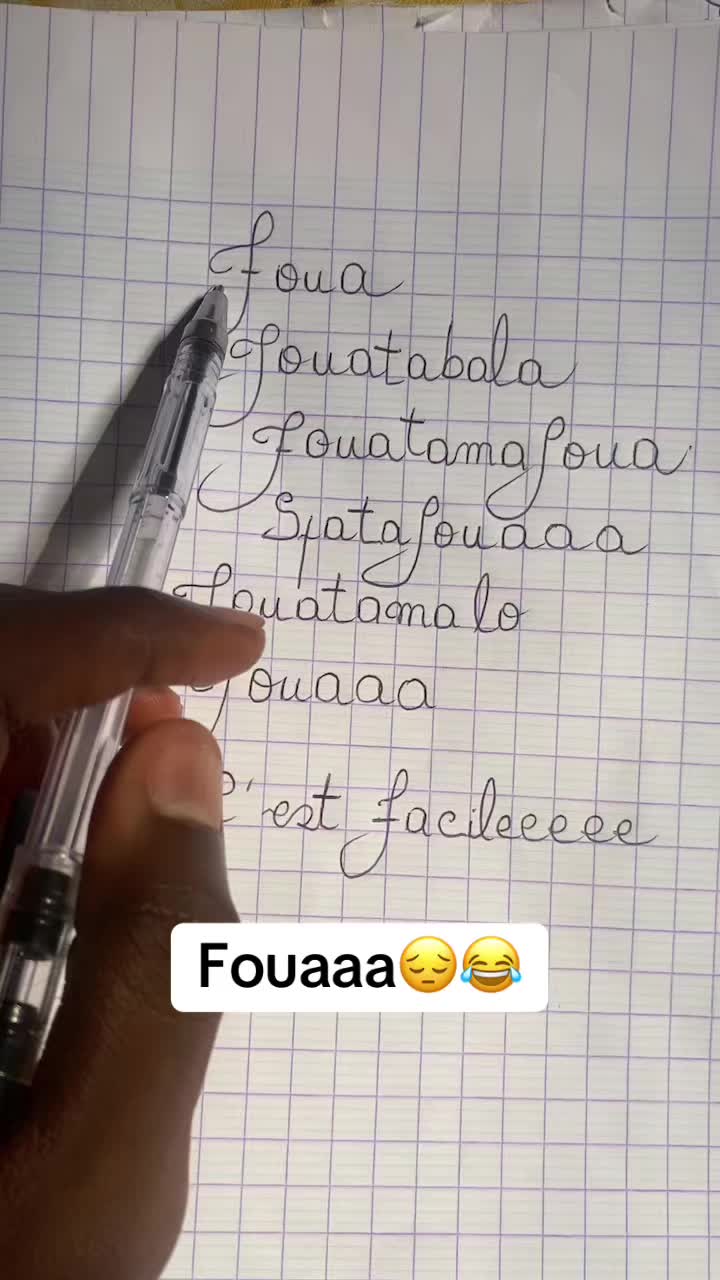 Foua
Fouatabala
Fouatamafoua
Spatafouaaa
Fouatamalo
Fouaaa
C'est facileeeee
Fouaaa😔😂